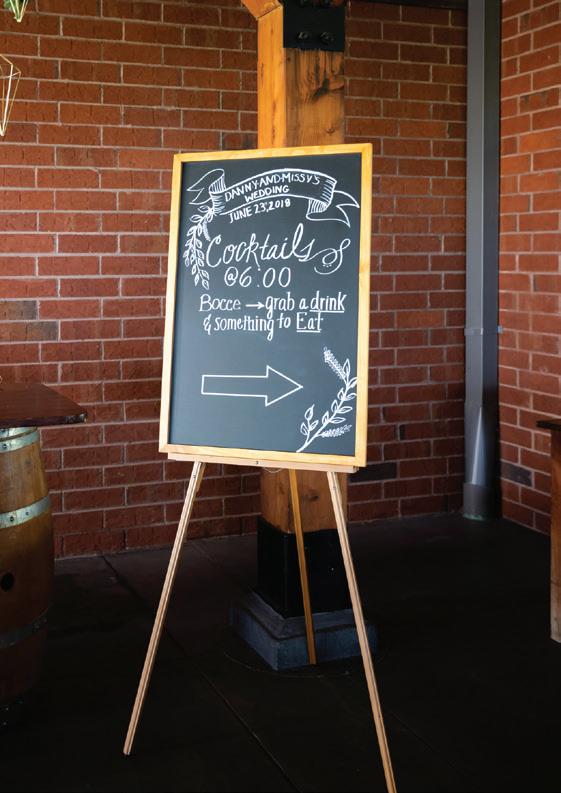 DANNY-AND-MISSY'S
WEDDING
JUNE 23, 2018
Cocktails
@6:00
Bocce →grab a drink
& something to Eat